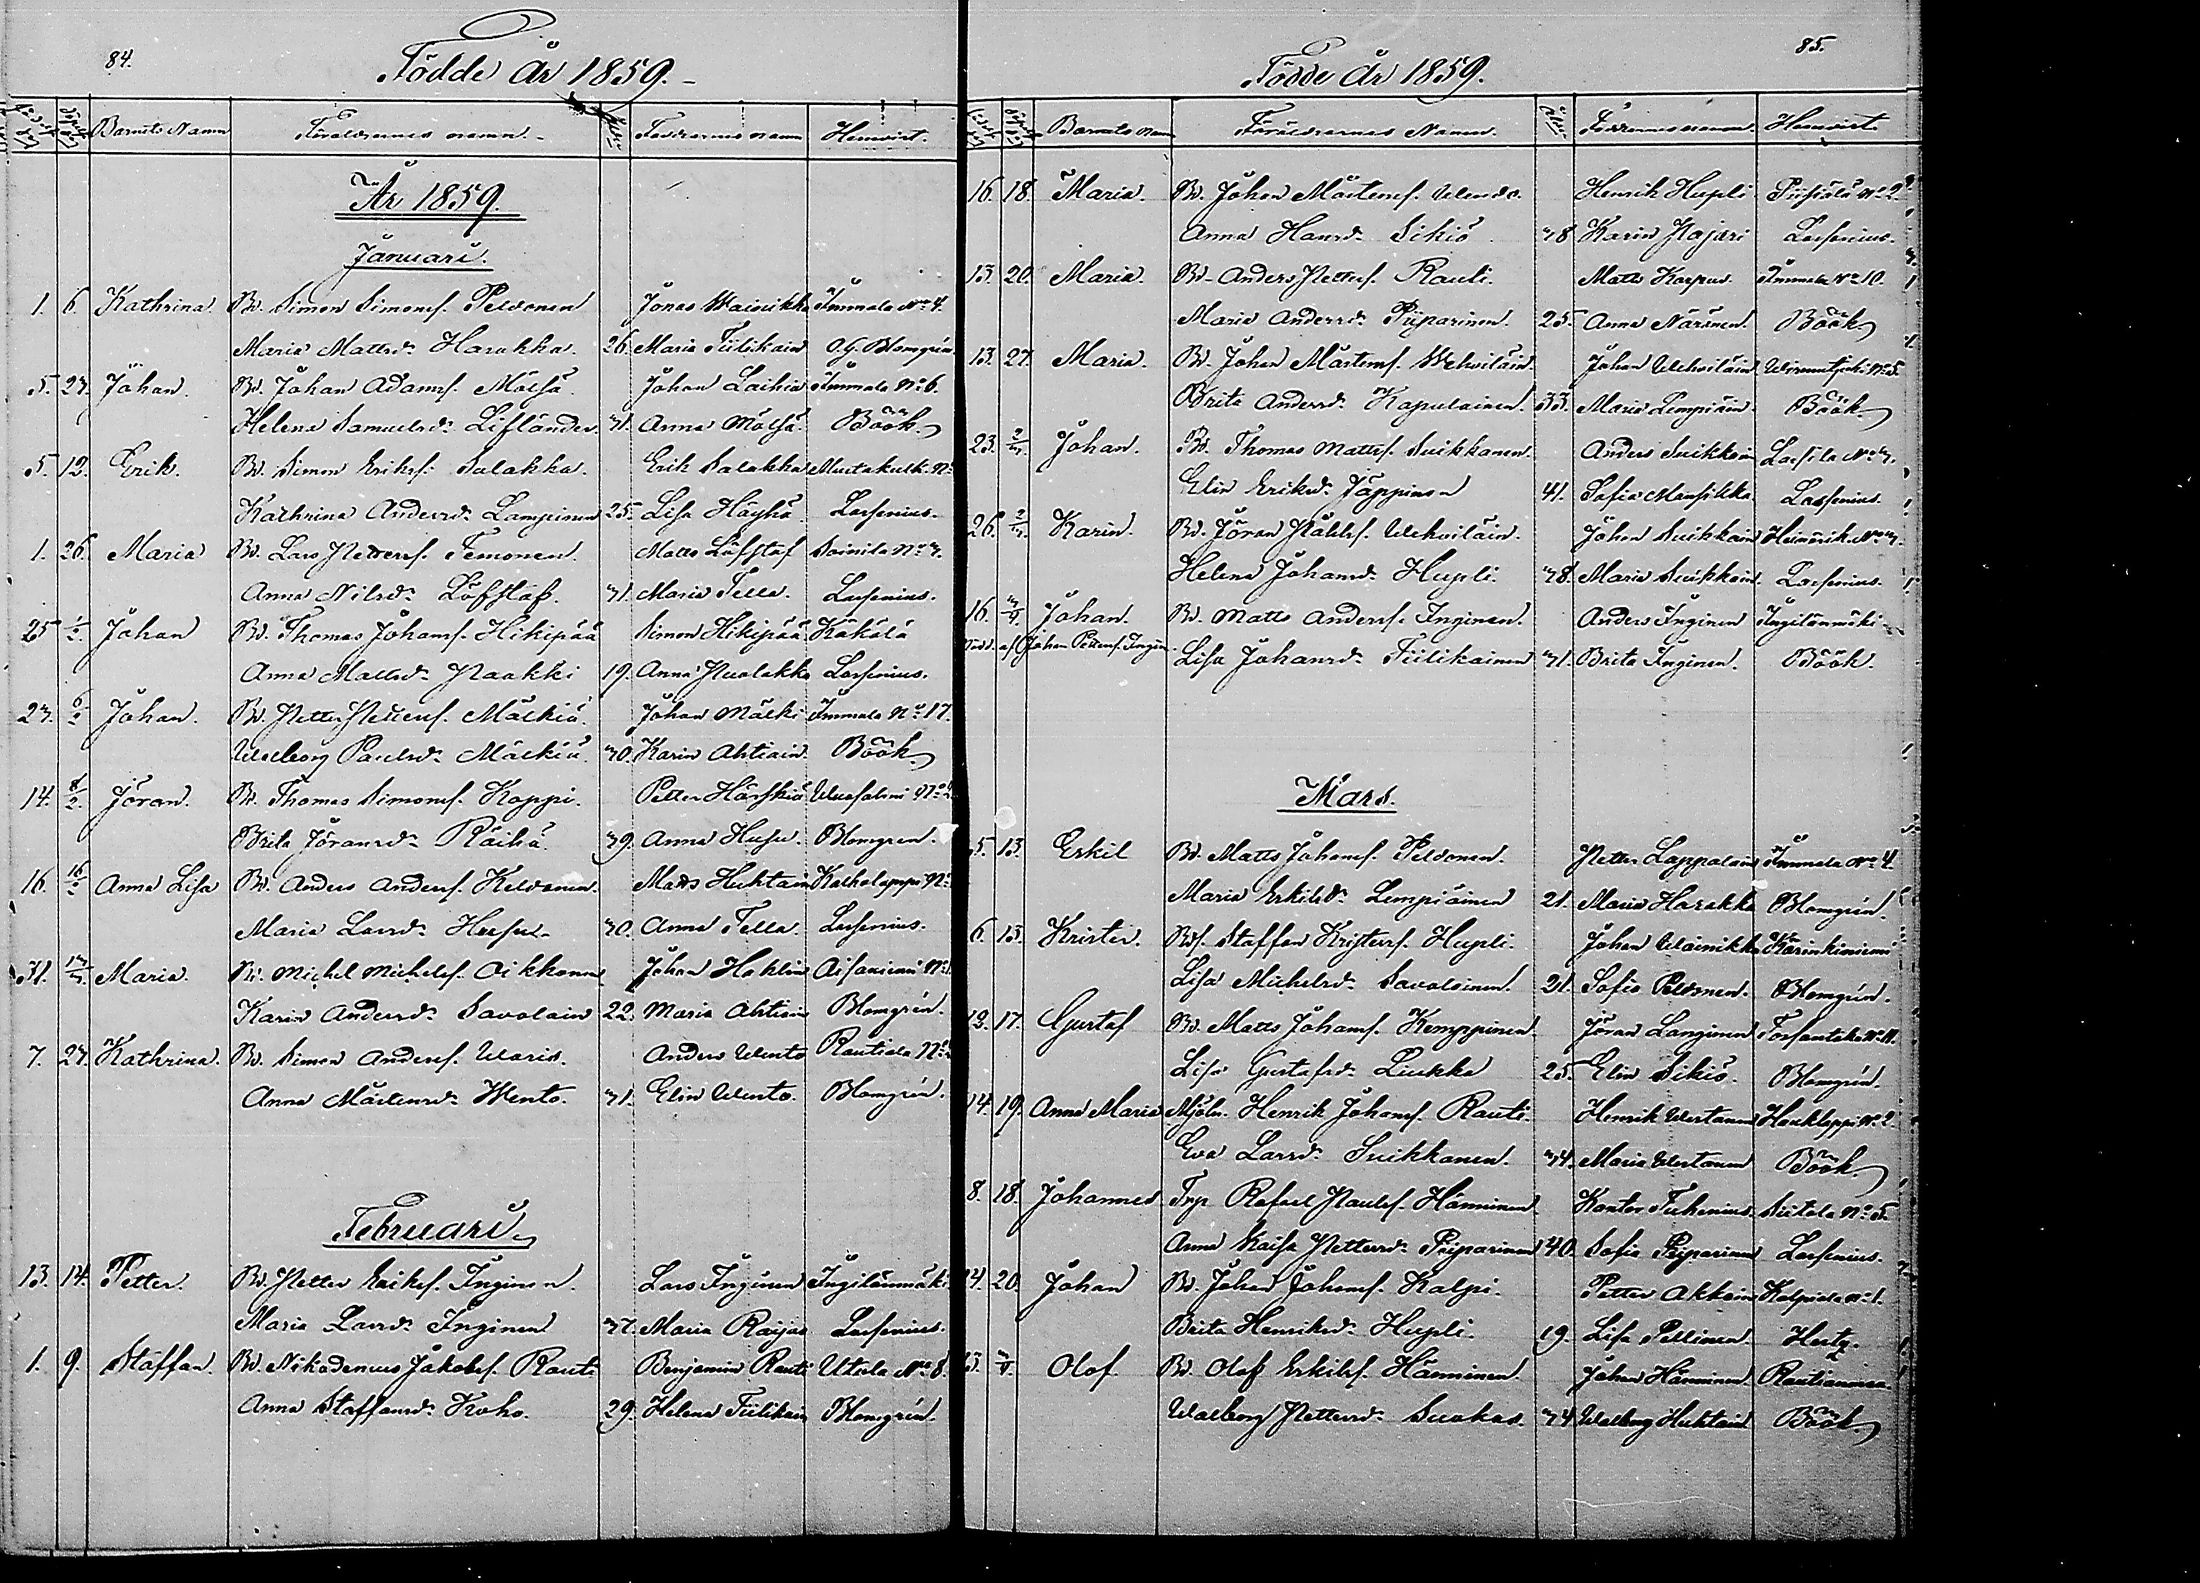 84.
Födde År 1859.
Barnets Namn Föräldrarnes namn. Faddrarnes namn Hemvist.
År 1859.
Januari.
1. 6. Kathrina. Bd. Simon Simonsf. Peldonen Jonas Wainikka Immala No 4.
Maria Mattsdr. Harakka. 26. Maria Tiilikain O.G. Blomgrén.
5. 23. Johan. Bd. Johan Adamsf. Mälsä. Johan Laihia Immala No 6.
Helena Samuelsdr. Lifländer. 31. Anna Mälsä. Böök.
5. 12. Erik. Bd. Simon Eriksf. Salakka. Erik Salakka Mustakulk. No
Kathrina Andersdr. Lampinen 25. Lisa Häyhä. Lassenius.
1. 26. Maria Bd. Lars Pettersf. Temonen. Matts Löfstaf Soinila No 3.
Anna Nilsdr. Löfstaf. 31. Maria Tella. Lassenius.
25 1/2 Johan Bd. Thomas Johansf. Hikipää Simon Hikipää Käkölä
Anna Mattsdr. Naakki 19. Anna Puolakka Lassenius.
23. 6/2 Johan. Bd. Petter Pettersf. Mälkiä. Johan Mälki Immala No 17.
Walborg Paulsdr. Mälkiä. 30. Karin Ahtiain. Böök.
14. 8/2. Jöran. Bd. Thomas Simonsf. Koppi. Petter Härskiä Wuosalmi No 2.
Brita Jöransdr. Räihä. 39. Anna Husu. Blomgren.
16. 16/2 Anna Lisa Bd. Anders Andersf. Keldonen. Matts Huhtain Kalholappi No
Maria Larsdr. Husu. 30. Anna Tella. Lassenius.
31. 13/3. Maria. Bd. Michel Michelsf. Oikkonen Johan Haklin Aisaniemi No 1.
Karin Andersdr. Savolain 22. Maria Ahtiain Blomgrén.
7. 27. Kathrina. Bd. Simon Andersf. Waris. Anders Wento Rautiala No 2.
Anna Mårtensdr. Wento. 31. Elin Wento. Blomgrén.
Februari.
13. 14. Petter. Bd. Petter Eriksf. Inginen. Lars Inginen Ingilänmäki.
Maria Larsdr. Inginen 37. Maria Raijas Lassenius.
1. 9. Staffan. Bd. Nikodemus Jakobsf. Rauti Benjamin Rauti Utula No 8.
Anna Staffansdr. Koho. 29. Helena Tiilikain Blomgrén.
85.
Födde År 1859.
Barnets namn Föräldrarnes Namn. Faddrarnes namn. Hemvist.
16. 18. Maria. Bd. Johan Mårtensf. Wento. Henrik Hupli No 2.
Anna Hansdr. Sikiö. 38 Karin Kajari Lassenius.
13. 20. Maria. Bd. Anders Pettersf. Rauti. Matts Karpus. Immala No 10.
Maria Andersdr. Piiparinen. 25. Anna Näränen. Böök.
13. 27. Maria. Bd. Johan Mårtensf. Wehviläin. Johan Wehviläin. No 5.
Brita Andersdr. Kapulainen. 33. Maria Lempiäin. Böök.
23. 2/3. Johan. Bd. Thomas Mattsf. Suikkanen. Anders Suikkain Lassila No 3.
Elin Eriksdr. Jäppinen 41. Sofia Mansikka Lassenius.
26. 2/3. Karin. Bd. Jöran Påhlsf. Wehviläin. Johan Suikkain No 3.
Helena Johansdr. Hupli. 38. Maria Suikkain. Lassenius.
16. 3/4 Johan. Bd. Matts Andersf. Inginen. Anders Inginen Ingilänmäki
af Johan Pettersf. Inginen Lisa Johansdr. Tiilikainen 31. Brita Inginen. Böök.
Mars.
5. 13. Eskil Bd. Matts Johansf. Peldonen. Petter Lappalain Immala No 4
Maria Eskilsdr. Lempiäinen 21. Maria Harakka Blomgrén.
6. 13. Krister. Bdf. Staffan Kristersf. Hupli. Johan Wainikka
Lisa Michelsdr. Savolainen. 21. Sofia Peldonen. Blomgrén.
12. 17. Gustaf Bd. Matts Johansf. Kemppinen. Jöran Langinen Torsantaka No 11.
Lisa Gustafsdr. Liukka 25. Elin Sikiö. Blomgrén.
14. 19. Anna Maria Mjöln. Henrik Johansf. Rauti. Henrik Wertanen Hauklappi No 2.
Eva Larsdr. Suikkanen. 34. Maria Wertanen Böök.
8. 18. Johannes Trp. Rafael Paulsf. Hänninen Kantor Siitola No 5.
Anna Kaisa Pettersdr. Piiparinen 40. Sofia Piiparinen Lassenius.
14. 20. Johan Bd. Johan Johansf. Kalpi. Petter Akkain Kalpiala No 1.
Brita Henriksdr. Hupli. 19. Lisa Pellinen. Hertz.
13. 3/4. Olof Bd. Olof Eskilsf. Hänninen. Johan Hänninen
Walborg Pettersdr. Suokas. 34 Walborg Huhtain Böök.